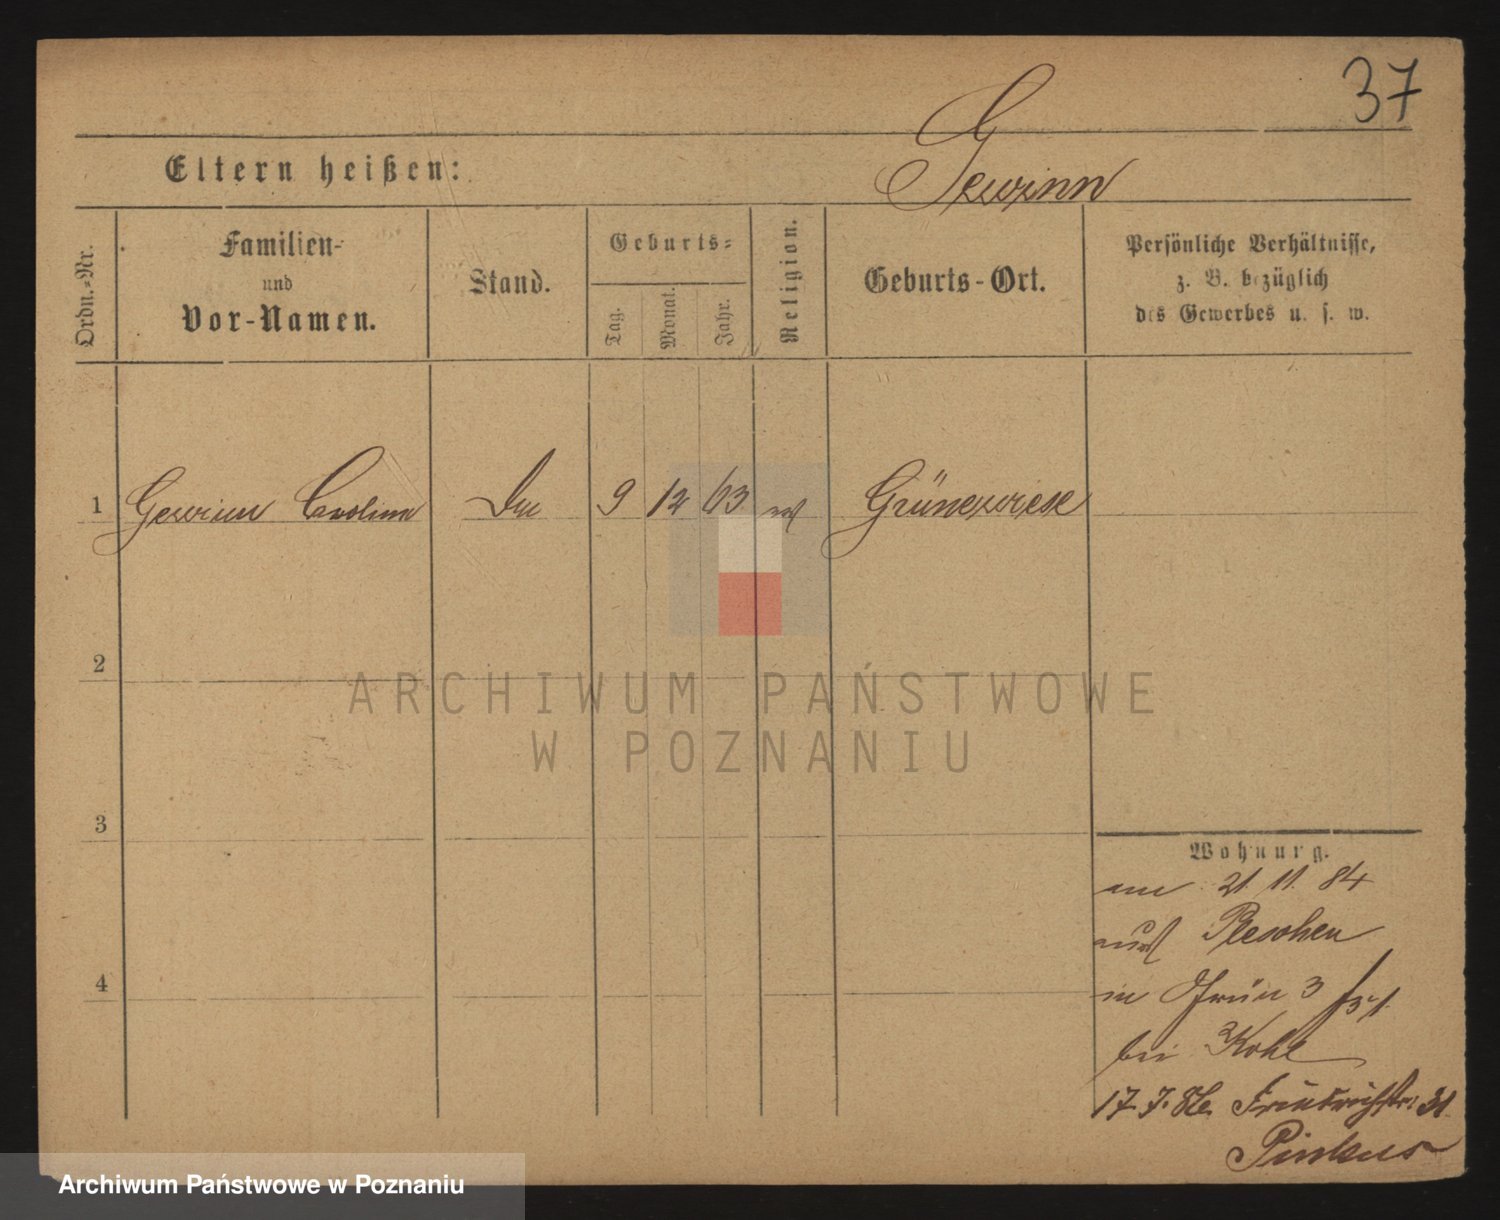 37
Eltern heißen:
Gewinn
Ordn.-Nr.
Familien-
und
Vor-Namen.
Stand.
Geburts-
Tag.
Monat.
Jahr.
Religion.
Geburts-Ort.
Persönliche Verhältnisse,
z. B. bezüglich
des Gewerbes u. s. w.
1 Gewinn Carolina 9 12 63 Grünewiese
2
3
4
Wohnung.
am 21. 11. 84
aus Pleschen
in Grün 3
bei Kohl
17. 7. 86. Friedrichstr. 31
Pinkus
ARCHIWUM PAŃSTWOWE
W POZNANIU
Archiwum Państwowe w Poznaniu